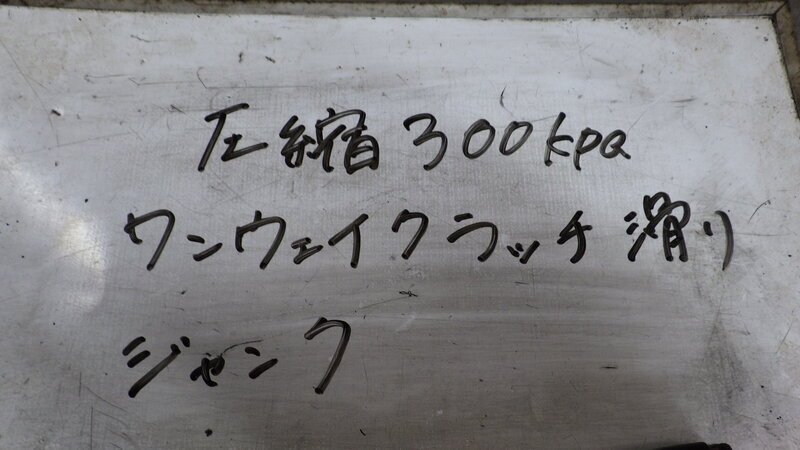 圧縮 300kpa
ワンウェイクラッチ 滑り
ジャンク